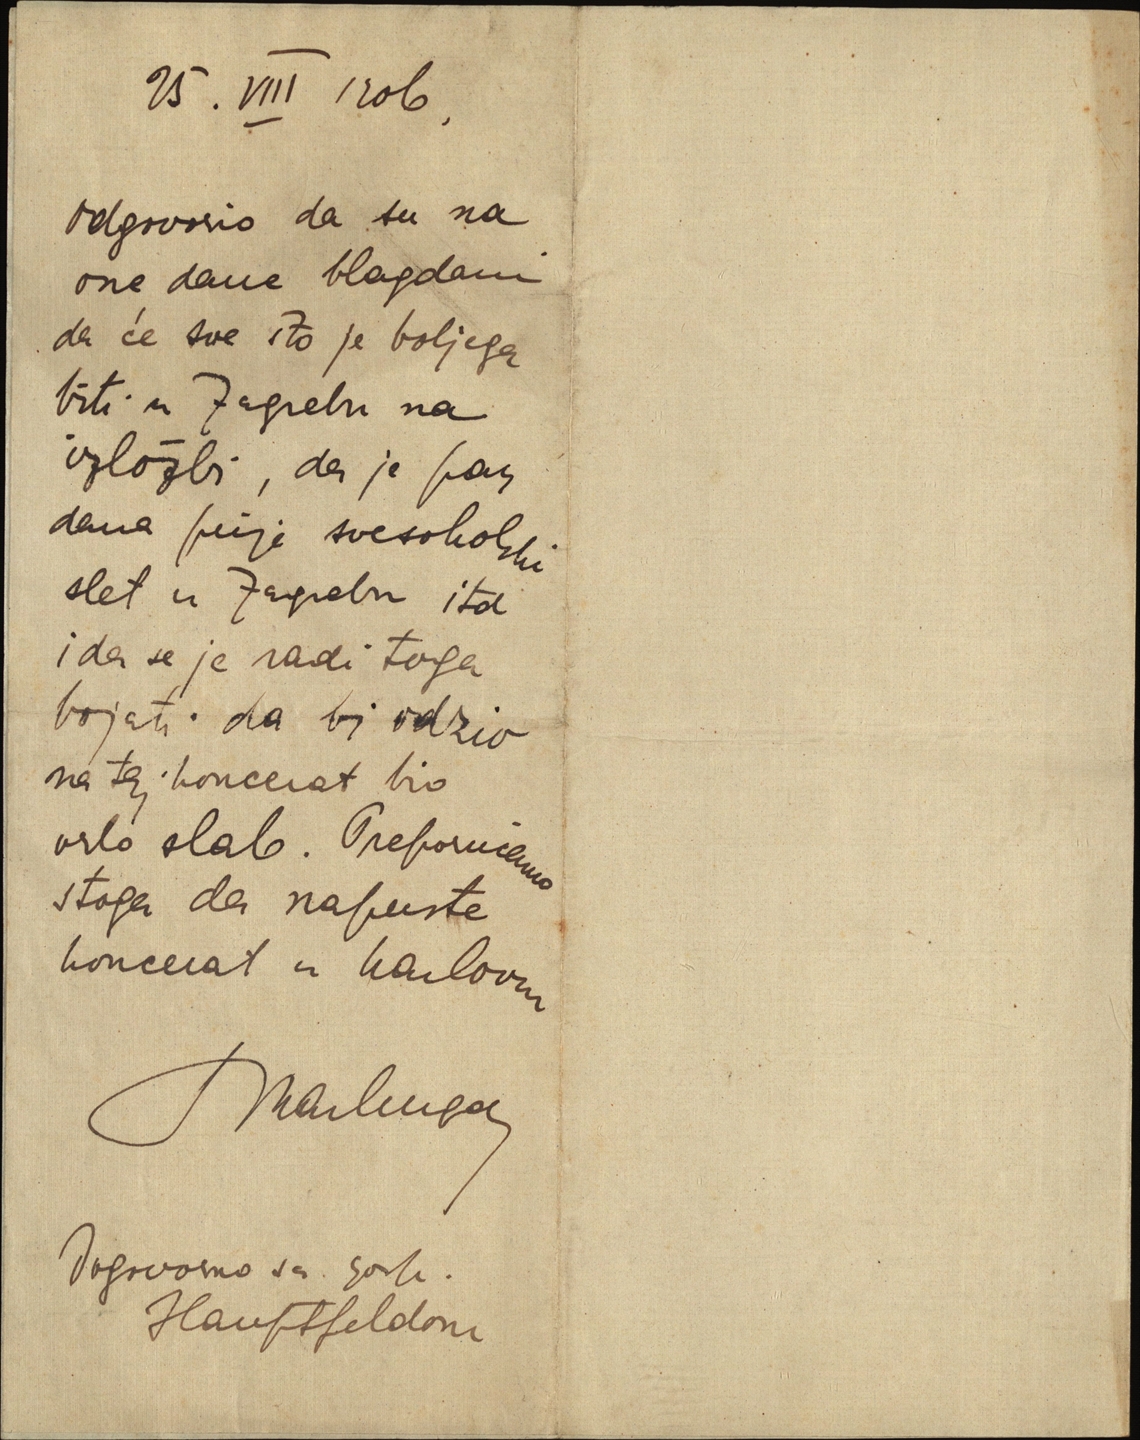 25. VIII 1906,
Odgovorio da su na
one dane blagdani
da će sve što je boljega
biti u Zagrebu na
izložbi, da je par
dana prije svesokolski
slet u Zagrebu itd
i da se je radi toga
bojati da bi odziv
na taj koncerat bio
vrlo slab. Preporučamo
stoga da napuste
koncerat u Karlovcu
Dogovorno sa gosp.
Hauptfeldom